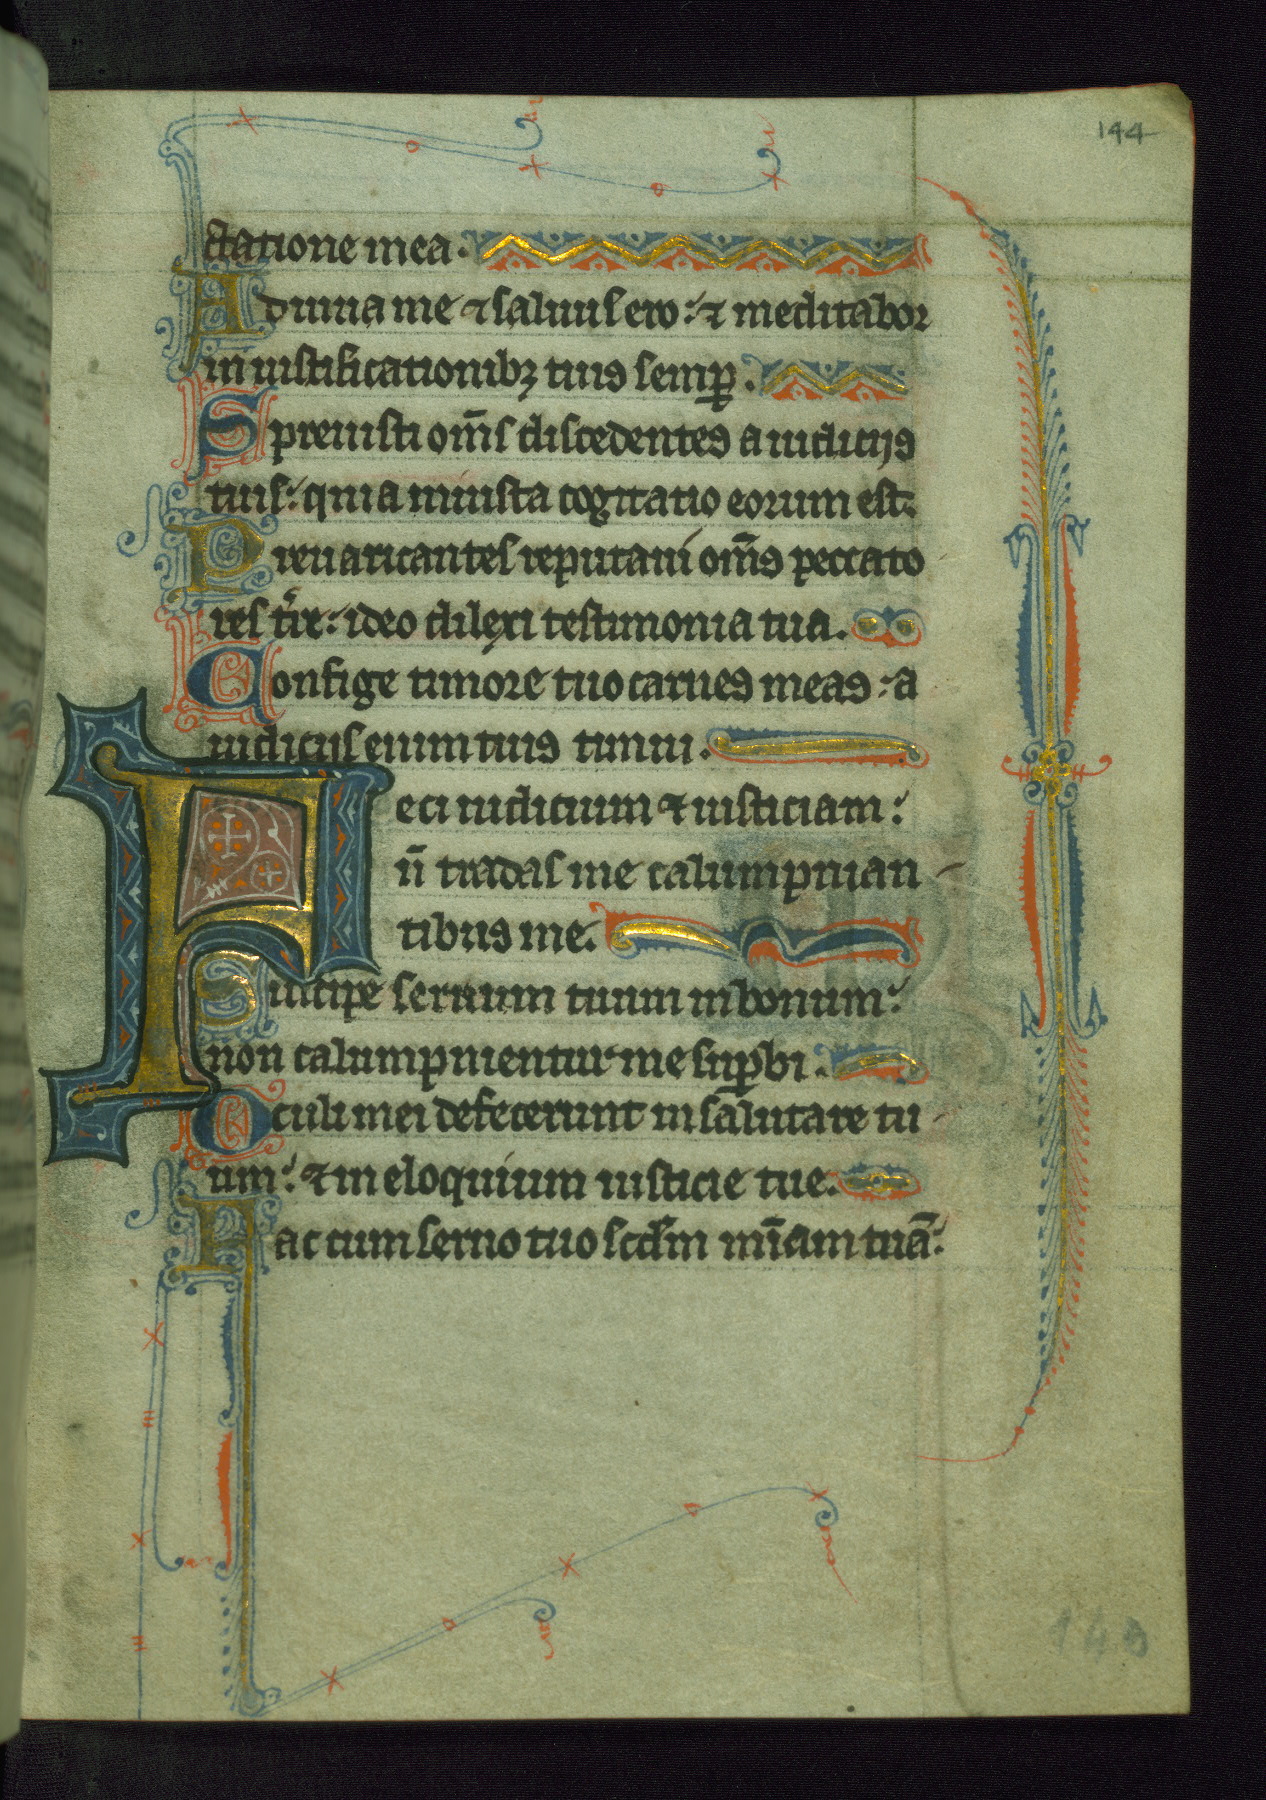 144
ctatione mea.
Adiuua me ⁊ saluus ero: ⁊ meditabor
in iustificationibꝫ tuis semꝑ.
Spreuisti om̄s discedentes a iudicijs
tuis: quia iniusta cogitatio eorum est.
Preuaricantes reputaui om̄s peccato
res t̄re: ideo dilexi testimonia tua.
Confige timore tuo carnes meas: a
iudicijs enim tuis timui.
Feci iudicium ⁊ iusticiam:
n̄ tradas me calumpnian
tibus me.
Suscipe seruum tuum in bonum:
non calumpnientur me suꝑbi.
Oculi mei defecerunt in salutare tu
um: ⁊ in eloquium iusticie tue.
Fac cum seruo tuo scd̄m mīam tuā: